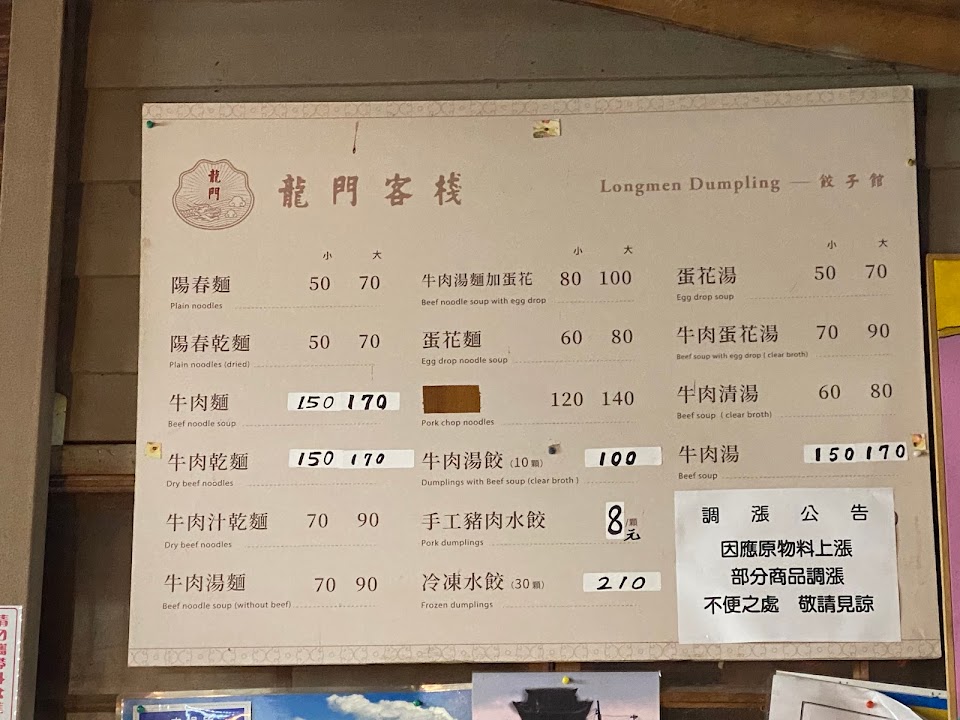 龍門
龍門客棧
Longmen Dumpling — 餃子館
小 大
陽春麵 50 70
Plain noodles
陽春乾麵 50 70
Plain noodles (dried)
牛肉麵 150 170
Beef noodle soup
牛肉乾麵 150 170
Dry beef noodles
牛肉汁乾麵 70 90
Dry beef noodles
牛肉湯麵 70 90
Beef noodle soup (without beef)
小 大
牛肉湯麵加蛋花 80 100
Beef noodle soup with egg drop
蛋花麵 60 80
Egg drop noodle soup
120 140
Pork chop noodles
牛肉湯餃 (10顆) 100
Dumplings with Beef soup (clear broth )
手工豬肉水餃 8/顆元
Pork dumplings
冷凍水餃 (30顆) 210
Frozen dumplings
小 大
蛋花湯 50 70
Egg drop soup
牛肉蛋花湯 70 90
Beef soup with egg drop ( clear broth)
牛肉清湯 60 80
Beef soup ( clear broth)
牛肉湯 150 170
Beef soup
調漲公告
因應原物料上漲
部分商品調漲
不便之處 敬請見諒